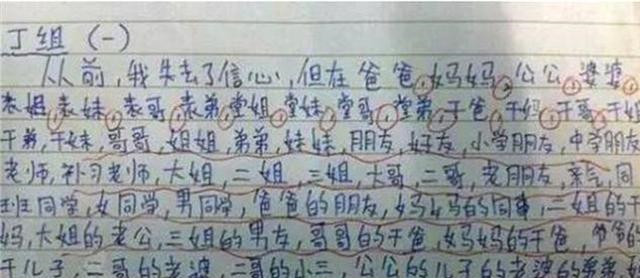 丁组 (一)
从前,我失去了信心,但在爸爸,妈妈,公公,婆婆,
表姐,表妹,表哥,表弟,堂姐,堂妹,堂哥,堂弟,干爸,干妈,干哥,干姐
干弟,干妹,哥哥,姐姐,弟弟,妹妹,朋朋友,好友,小学朋友,中学朋友
老师,补习老师,大姐,二姐,三姐,大哥,二哥,老朋友,亲气,同
班同学,女同学,男同学,爸爸的朋友,妈妈的同事,二姐的干
妈,大姐的老公,三姐的男友,哥哥的干爸,妈妈的干爸,爷爷的
干儿子,二哥的老婆,二哥的小三,公公的儿子的老婆的弟弟